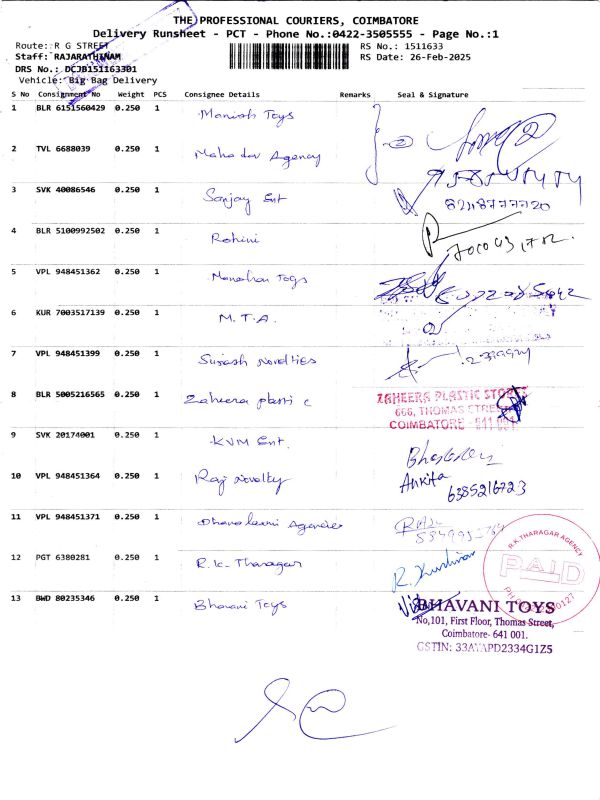 THE PROFESSIONAL COURIERS, COIMBATORE
Delivery Runsheet - PCT - Phone No.:0422-3505555 - Page No.:1
Route: R G STREET
RS No.: 1511633
Staff: RAJARATHINAM
RS Date: 26-Feb-2025
DRS No.: DCJB151163301
Vehicle: Big Bag Delivery
S No Consignment No Weight PCS Consignee Details Remarks Seal & Signature
1 BLR 6151560429 0.250 1 Manish Toys
2 TVL 6688039 0.250 1 Mahadev Agency
3 SVK 40086546 0.250 1 Sanjay Ent
8248777720
4 BLR 5100992502 0.250 1 Rohini
5 VPL 948451362 0.250 1 Manohar Toys
6 KUR 7003517139 0.250 1 M.T.A.
7 VPL 948451399 0.250 1 Suresh Novelties
8 BLR 5005216565 0.250 1 Zaheera plastic
ZAHEERA PLASTIC STORES
666, THOMAS STREET
COIMBATORE - 641 001
9 SVK 20174001 0.250 1 KVM Ent.
10 VPL 948451364 0.250 1 Raj Novelty
Ankita
6385216723
11 VPL 948451371 0.250 1 Dhanalaxmi Agencies
12 PGT 6380281 0.250 1 R.K. Tharagar
R.K.THARAGAR AGENCY
PAID
13 BWD 80235346 0.250 1 Bhavani Toys
BHAVANI TOYS
No,101, First Floor, Thomas Street,
Coimbatore- 641 001.
GSTIN: 33AVAPD2334G1Z5